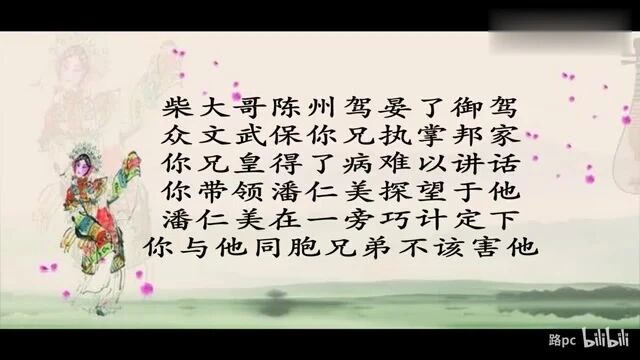 柴大哥陈州驾晏了御驾
众文武保你兄执掌邦家
你兄皇得了病难以讲话
你带领潘仁美探望于他
潘仁美在一旁巧计定下
你与他同胞兄弟不该害他
路pc bilibili